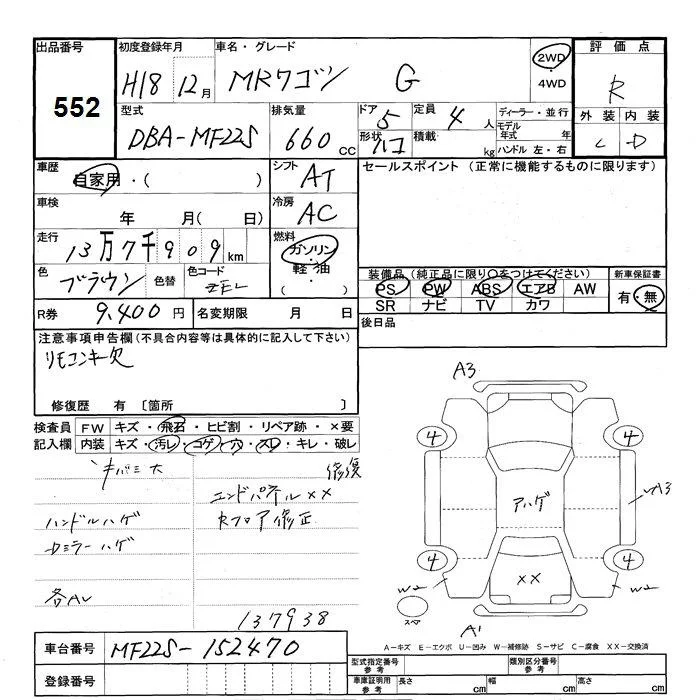 出品番号 初度登録年月 車名・グレード 評価点
552
H18 12月 MRワゴン G 2WD ・ 4WD R
型式 排気量 ドア 定員 ディーラー・並行 外装 内装
DBA-MF22S 660 CC 5 4人 モデル年式 年 C D
形状 ハコ 積載 kg ハンドル 左・右
車歴 シフト セールスポイント (正常に機能するものに限ります)
自家用・( ) AT
車検 冷房
年 月( 日) AC
走行 燃料
13万7千909km ガソリン・軽油・( )
色 ブラウン 色替 色コード ZEL
装備品(純正品に限り○をつけてください) 新車保証書
PS PW ABS エアB AW 有・無
SR ナビ TV カワ
R券 9,400円 名変期限 月 日 後日品
注意事項申告欄(不具合内容等は具体的に記入して下さい)
リモコンキー欠
修復歴 有 〔箇所 〕
検査員 FW キズ・飛石・ヒビ割・リペア跡・×要
記入欄 内装 キズ・汚レ・コゲ・穴・スレ・キレ・破レ
修復
エンドパネル××
ハンドルハゲ Rフロア修正
Dミラーハゲ
各AU
137938
A3
4 4
アハゲ A3
4 4
W2 ×× W2
スペア
A1
A-キズ E-エクボ U-凹み W-補修跡 S-サビ C-腐食 XX-交換済
車台番号 MF22S-152470
登録番号
型式指定番号 参考 類別区分番号 参考
車庫証明用 参考 長さ cm 幅 cm 高さ cm